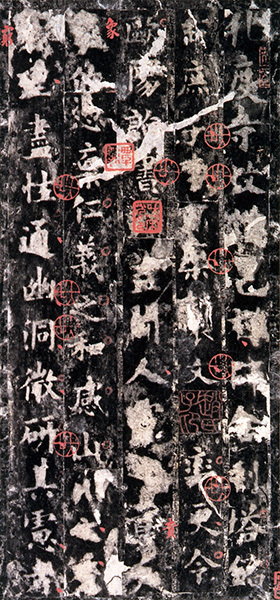 化度寺故僧邕禪師舍利塔銘
右庶子李百藥製文率更令
歐陽詢書蓋聞人靈之貴天
象攸憑稟仁義之和感山川之
理盡性通幽洞微研其慮